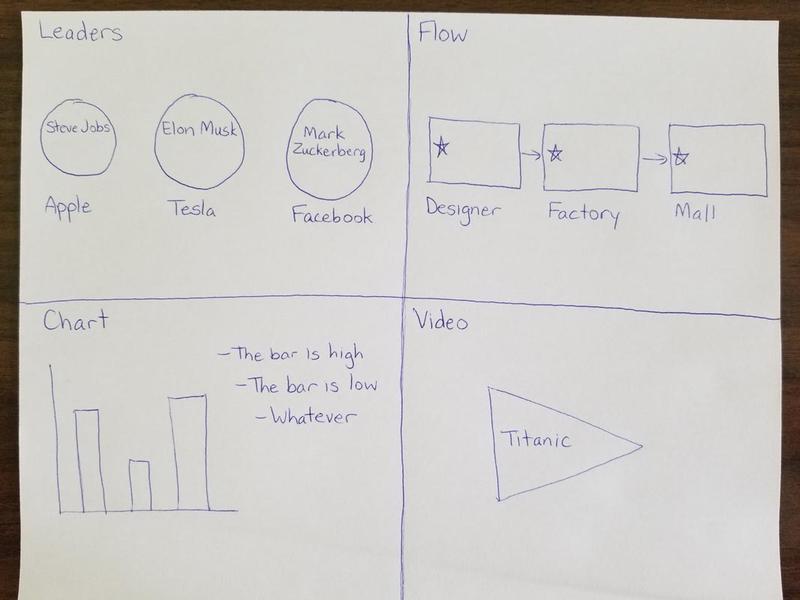 Leaders
Steve Jobs
Elon Musk
Mark
Zuckerberg
Apple
Tesla
Facebook
Flow
Designer
Factory
Mall
Chart
-The bar is high
-The bar is low
-Whatever
Video
Titanic